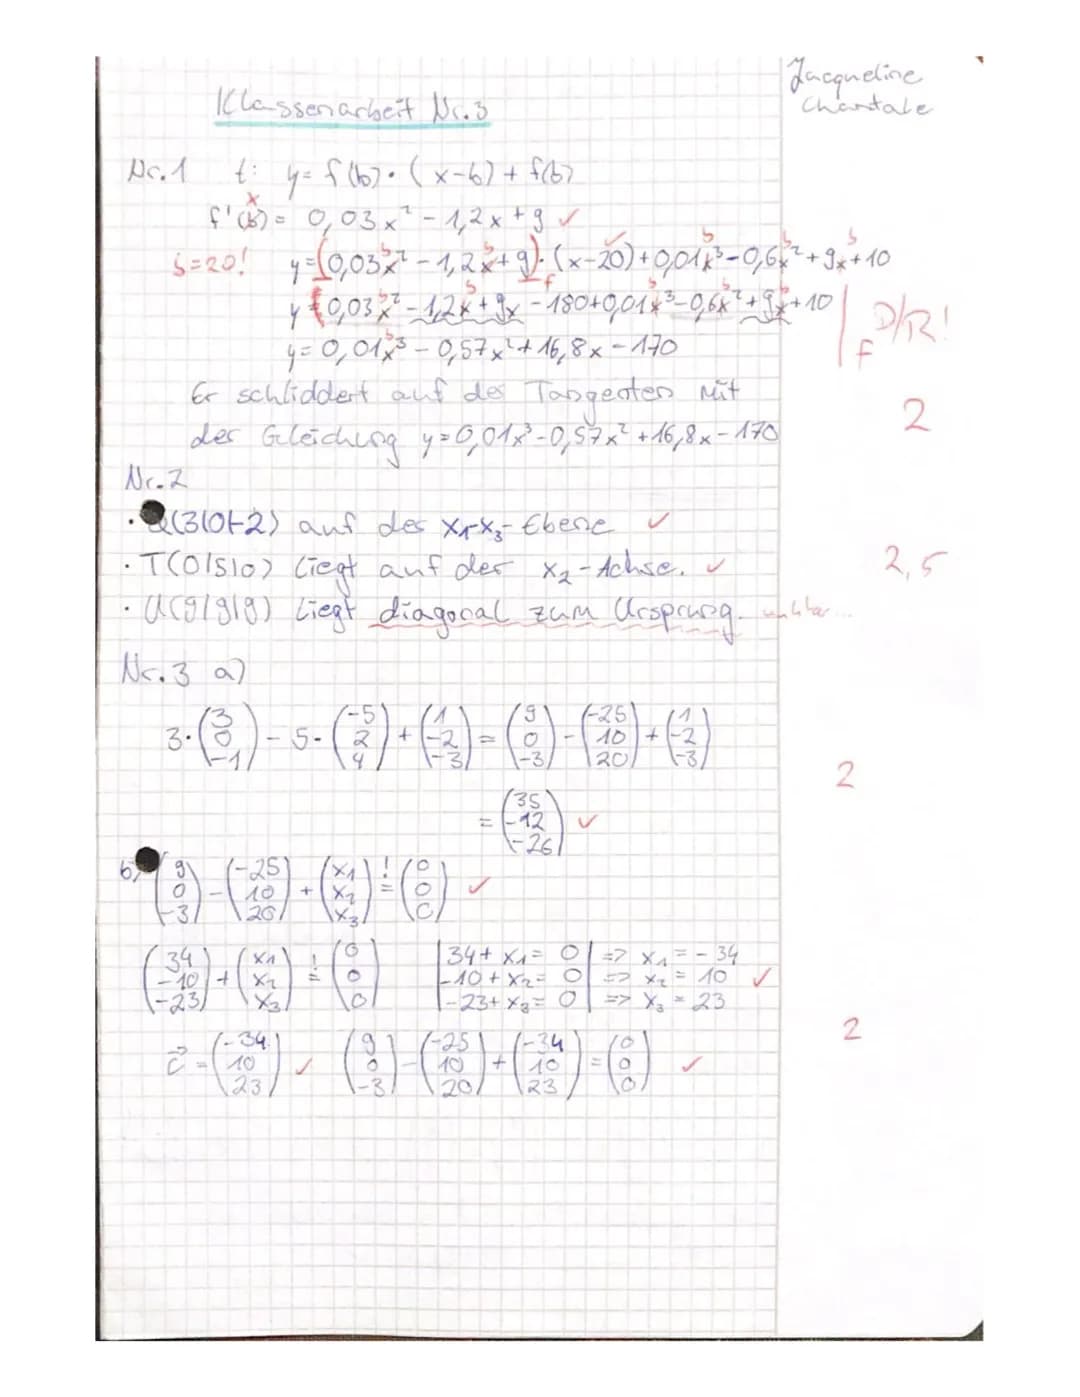 Jacqueline
Chantale
Klassenarbeit Nr.3
Nr.1 t: y= f(b)·(x-b)+f(b)
x
f'(b)= 0,03x² - 1,2x + 9 ✓
b=20! y=(0,03x² - 1,2x+9)·(x-20)+0,01x³-0,6x²+9x+10
y=(0,03x² - 1,2x+9x - 180+0,01x³-0,6x²+9x+10
f D/R!
y= 0,01x³ - 0,57x² + 16,8x - 170
Er schliddert auf der Tangenten mit
2
der Gleichung y=0,01x³-0,57x²+16,8x-170
Nr.2
· Q(3|0|-2) auf der x₁-x₃-Ebene ✓
· T(0|5|0) liegt auf der x₂-Achse. ✓ 2,5
· U(9|9|9) liegt diagonal zum Ursprung.
Nr.3 a)
3·(3 0 -1) - 5·(-5 2 4) + (1 -2 -3) = (9 0 -3) - (-25 10 20) + (1 -2 -3)
2
= (35 -12 -26) ✓
b) (9 0 -3) - (-25 10 20) + (x₁ x₂ x₃) != (0 0 0) ✓
(34 -10 -23) + (x₁ x₂ x₃) != (0 0 0) |34+x₁= 0| => x₁ = -34
|-10+x₂= 0| => x₂ = 10 ✓
|-23+x₃= 0| => x₃ = 23
2
c⃗ = (-34 10 23) ✓ (9 0 -3) - (-25 10 20) + (-34 10 23) = (0 0 0) ✓